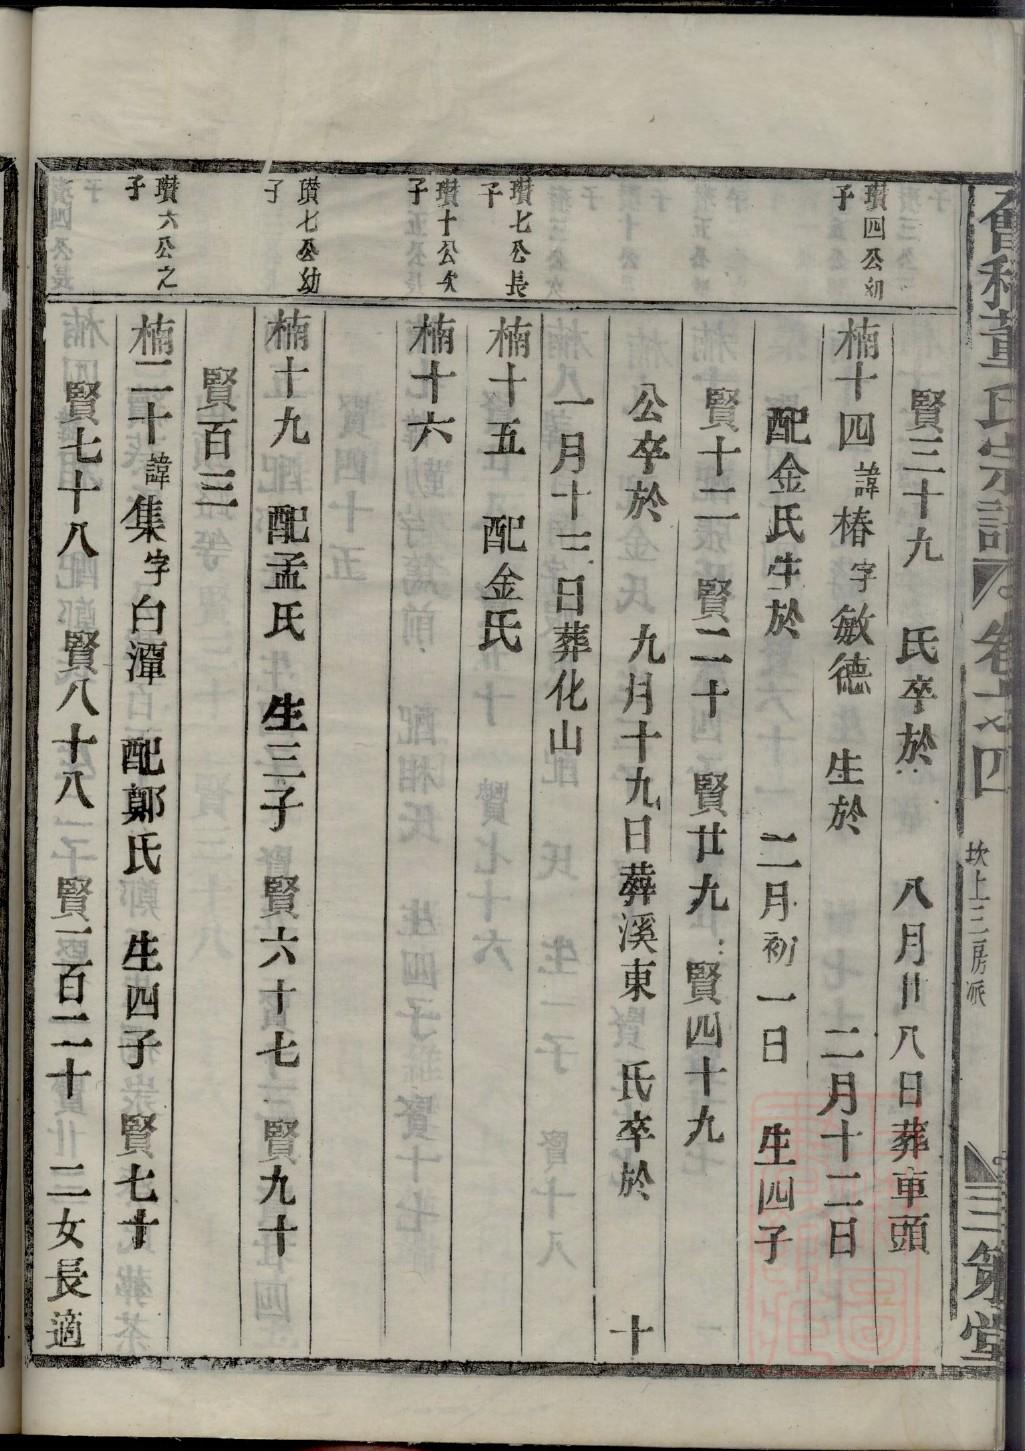 董氏宗譜 卷之四 坎上三房派 三策堂
賢三十九 氏卒於 八月廿八日葬車頭
瓚四公幼子
楠十四諱椿字敏德 生於 二月十二日
配金氏生於 二月初一日 生四子
賢十二 賢二十 賢廿九 賢四十九
公卒於 九月十九日葬溪東 氏卒於 十
一月十三日葬化山
瓚七公長子
楠十五 配金氏
瓚十公次子
楠十六
瓚七公幼子
楠十九 配孟氏 生三子 賢六十七 賢九十
賢百三
瓚六公之子
楠二十諱集字白潭 配鄭氏 生四子 賢七十
賢七十八 賢八十八 賢一百二十 二女長適